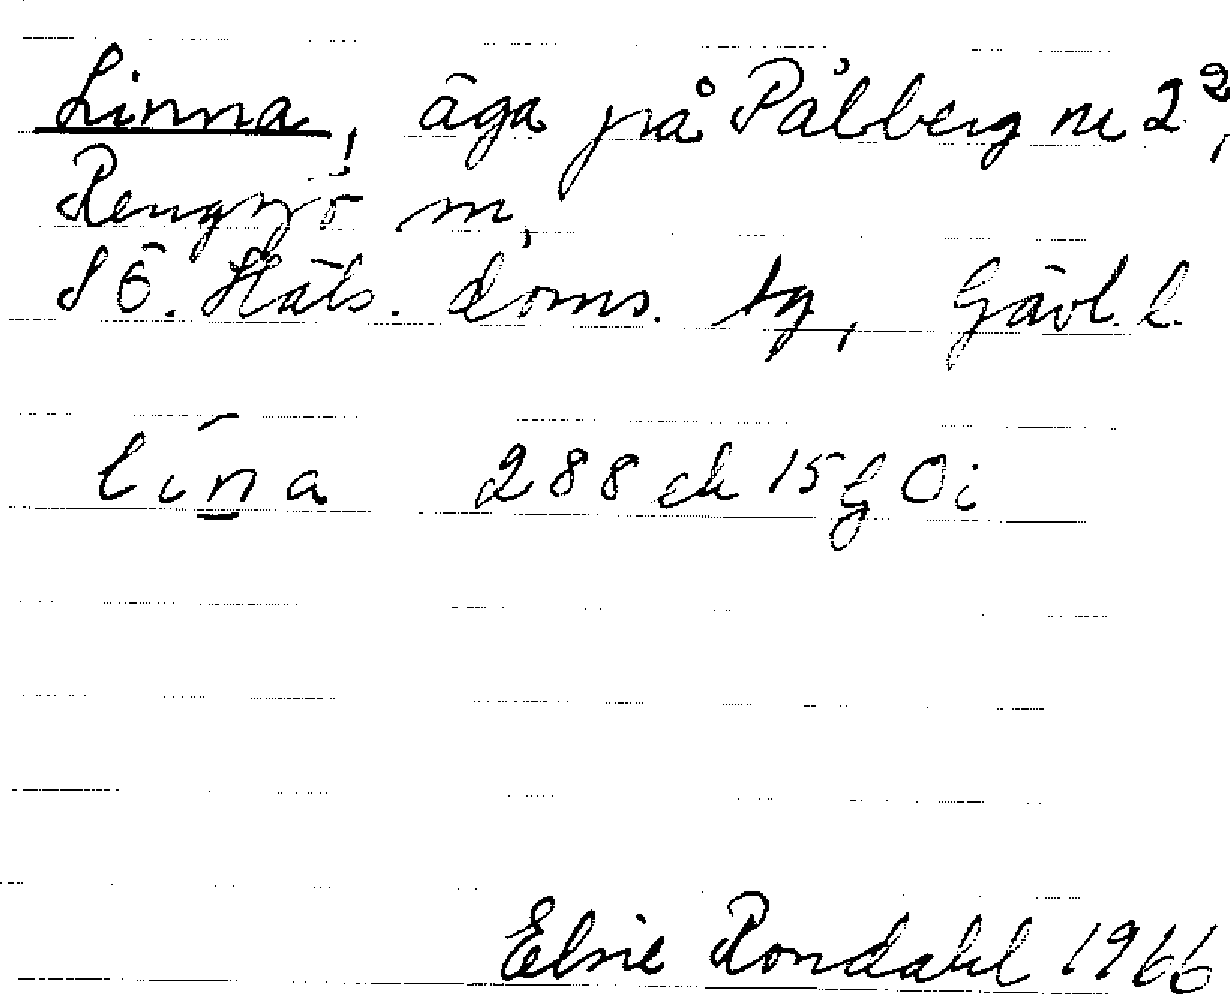 Linna, äga på Pålberg nr 2²,
Rengsjö m,
SÖ. Häls. doms. tg, Gävl. l.
lína 288 ek 15 g 0 i
Elsie Rondahl 1966